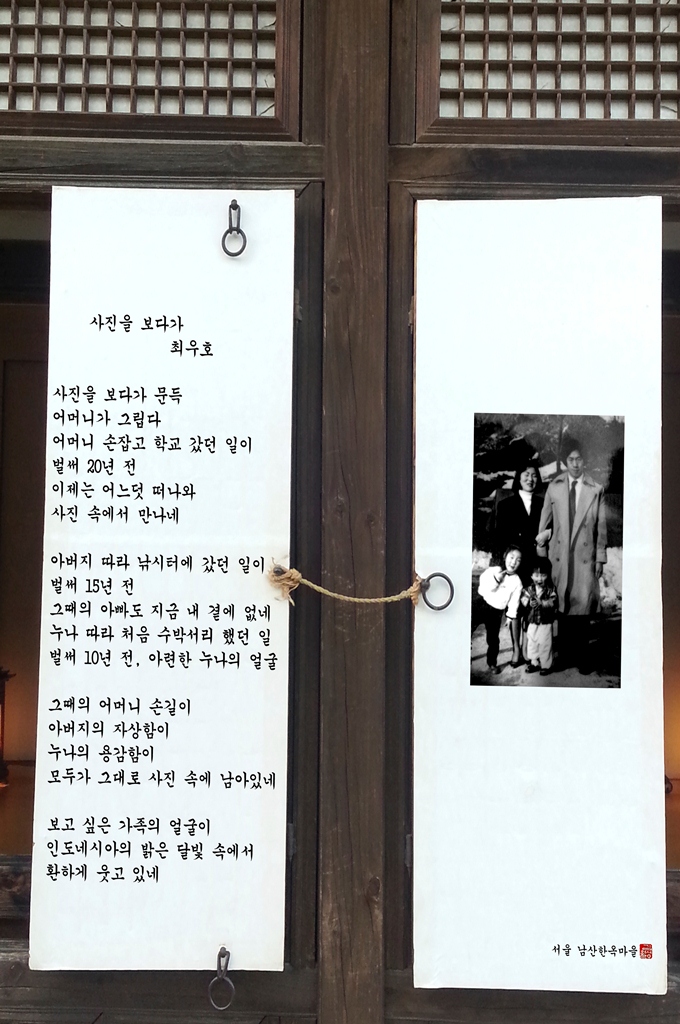 사진을 보다가
최우호
사진을 보다가 문득
어머니가 그립다
어머니 손잡고 학교 갔던 일이
벌써 20년 전
이제는 어느덧 떠나와
사진 속에서 만나네
아버지 따라 낚시터에 갔던 일이
벌써 15년 전
그때의 아빠도 지금 내 곁에 없네
누나 따라 처음 수박서리 했던 일
벌써 10년 전, 아련한 누나의 얼굴
그때의 어머니 손길이
아버지의 자상함이
누나의 용감함이
모두가 그대로 사진 속에 남아있네
보고 싶은 가족의 얼굴이
인도네시아의 밝은 달빛 속에서
환하게 웃고 있네
서울 남산한옥마을